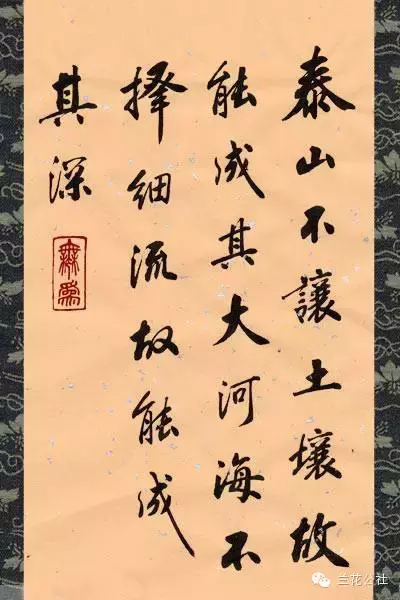 泰山不讓土壤故
能成其大河海不
擇細流故能成
其深
兰花公社